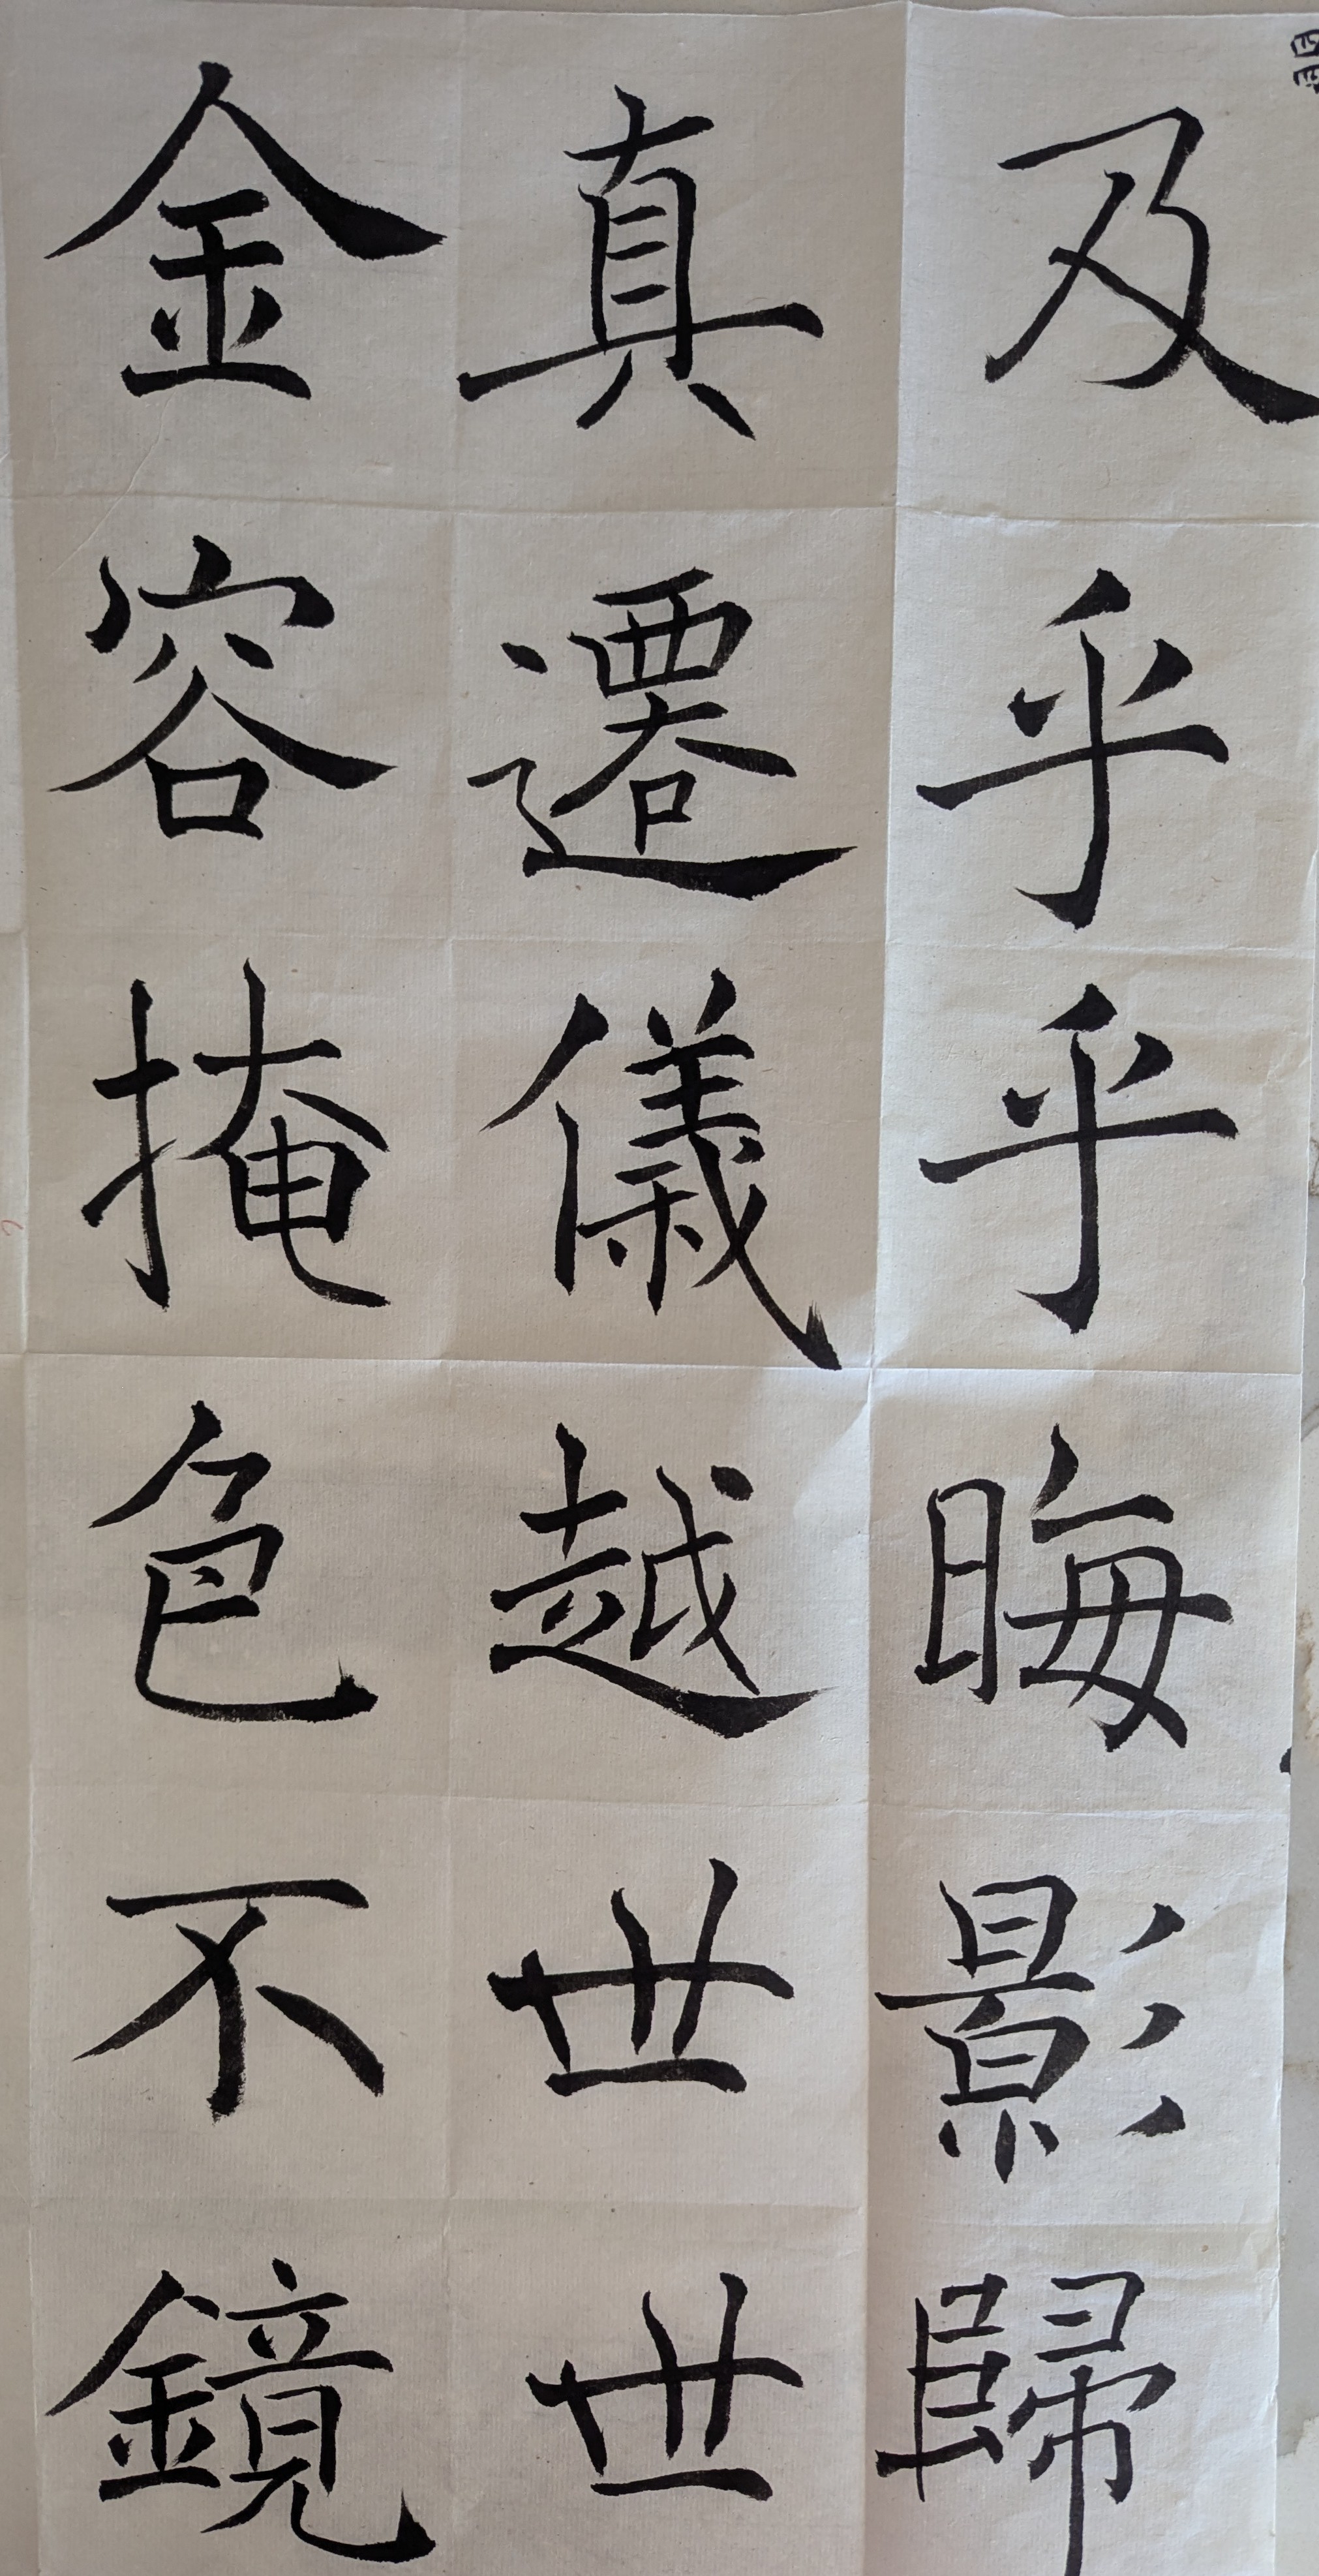 及乎乎晦影歸
真遷儀越世世
金容掩色不鏡